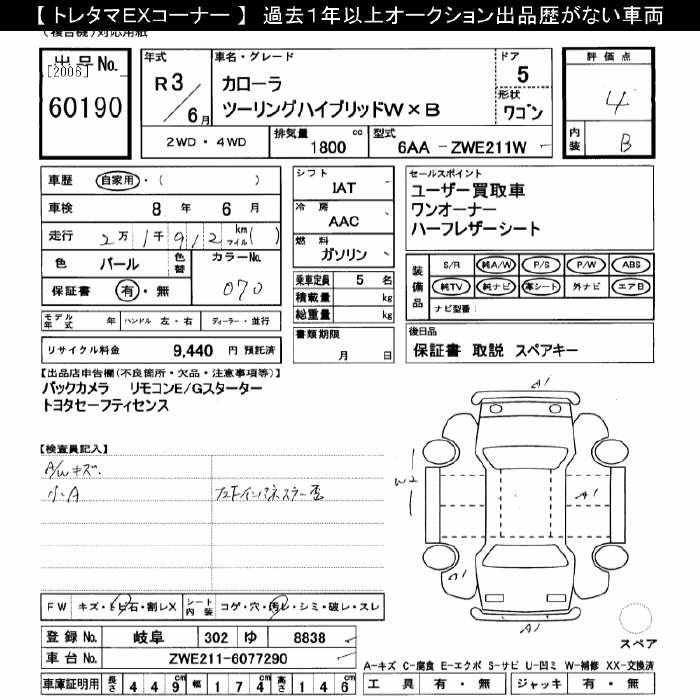 【 トレタマEXコーナー 】 過去1年以上オークション出品歴がない車両
(複合機)対応用紙
出品No.
[2006]
60190
年式
R3/6月
車名・グレード
カローラ
ツーリングハイブリッドW×B
ドア
5
形状
ワゴン
評価点
4
内装
B
2WD・4WD
排気量
1800 cc
型式
6AA -ZWE211W
車歴
自家用・( )
車検
8 年 6 月
走行
2万1千912 km マイル( )
色
パール
色替
カラーNo.
070
保証書
有・無
モデル年式 年
ハンドル 左・右
ディーラー・並行
リサイクル料金
9,440 円 預託済
シフト
IAT
冷房
AAC
燃料
ガソリン
乗車定員 5 名
積載量 kg
総重量 kg
書類期限
月 日
セールスポイント
ユーザー買取車
ワンオーナー
ハーフレザーシート
装備品
S/R 純A/W P/S P/W ABS
純TV 純ナビ 革シート 外ナビ エアB
ナビ型番:
後日品
保証書 取説 スペアキー
【出品店申告欄(不良箇所・欠品・注意事項等)】
バックカメラ リモコンE/Gスターター
トヨタセーフティセンス
【検査員記入】
A/Wキズ.
小A
A1
W2
A1
A1
A1
FW キズ・トビ石・割レX
シート内装 コゲ・穴・汚レ・シミ・破レ・スレ
登録 No. 岐阜 302 ゆ 8838
車台 No. ZWE211-6077290
車庫証明用 長さ 449cm 幅 174cm 高さ 146cm
スペア
A-キズ C-腐食 E-エクボ S-サビ U-凹ミ W-補修 XX-交換済
工具 有・無 ジャッキ 有・無